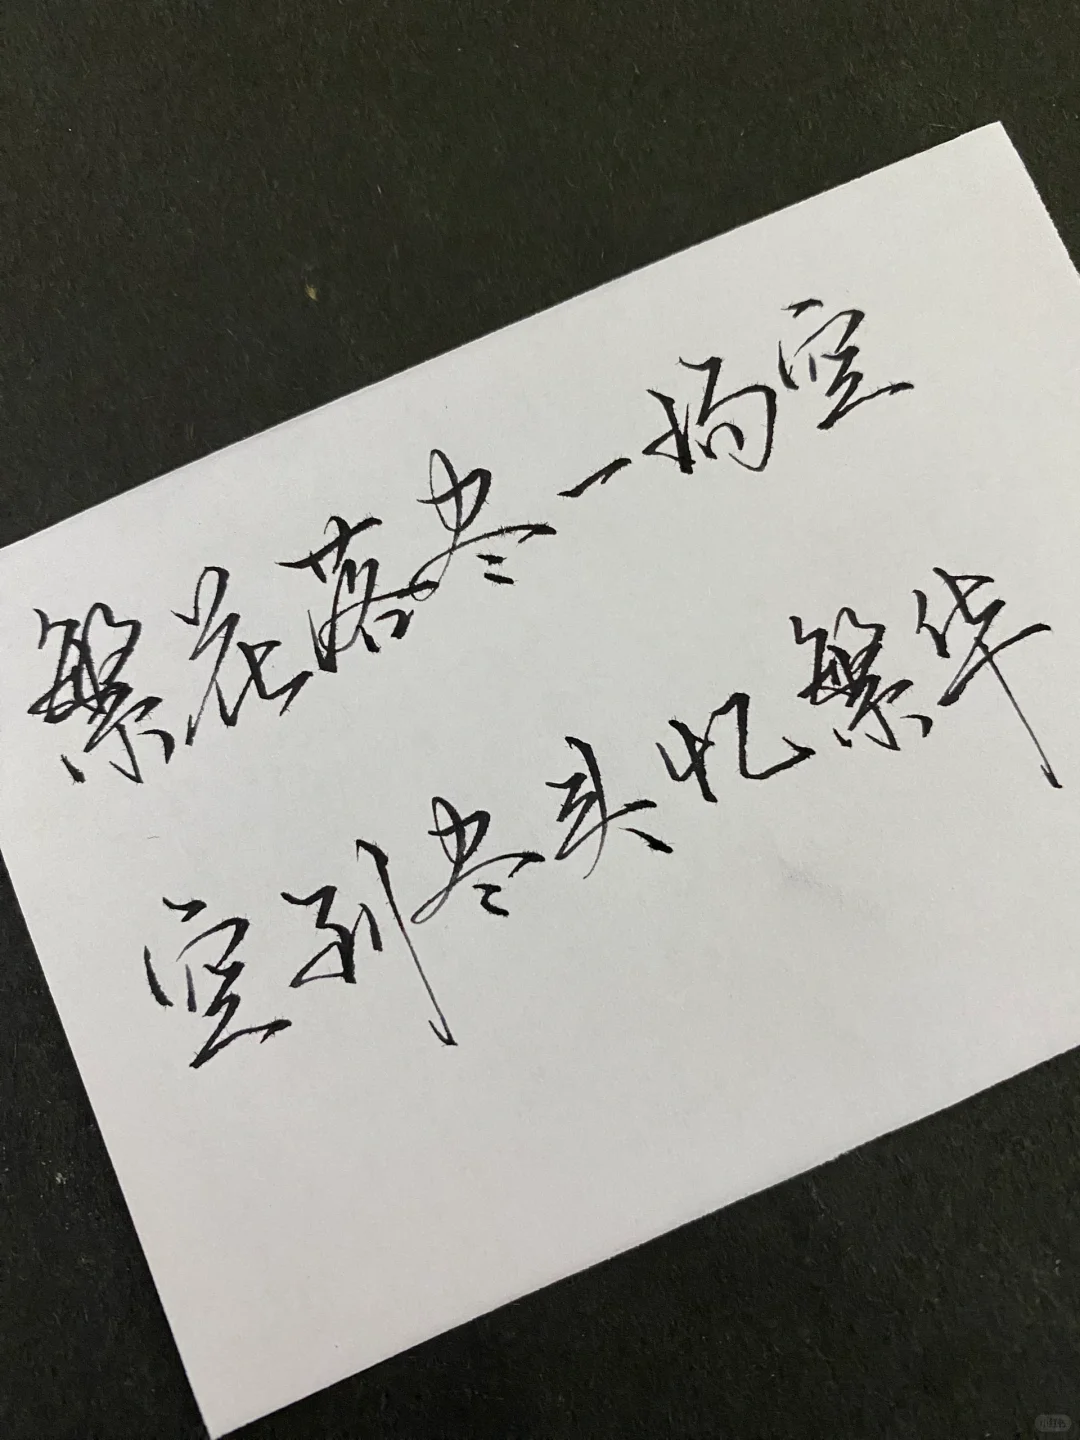 繁花落尽一场空
空到尽头忆繁华
小红书